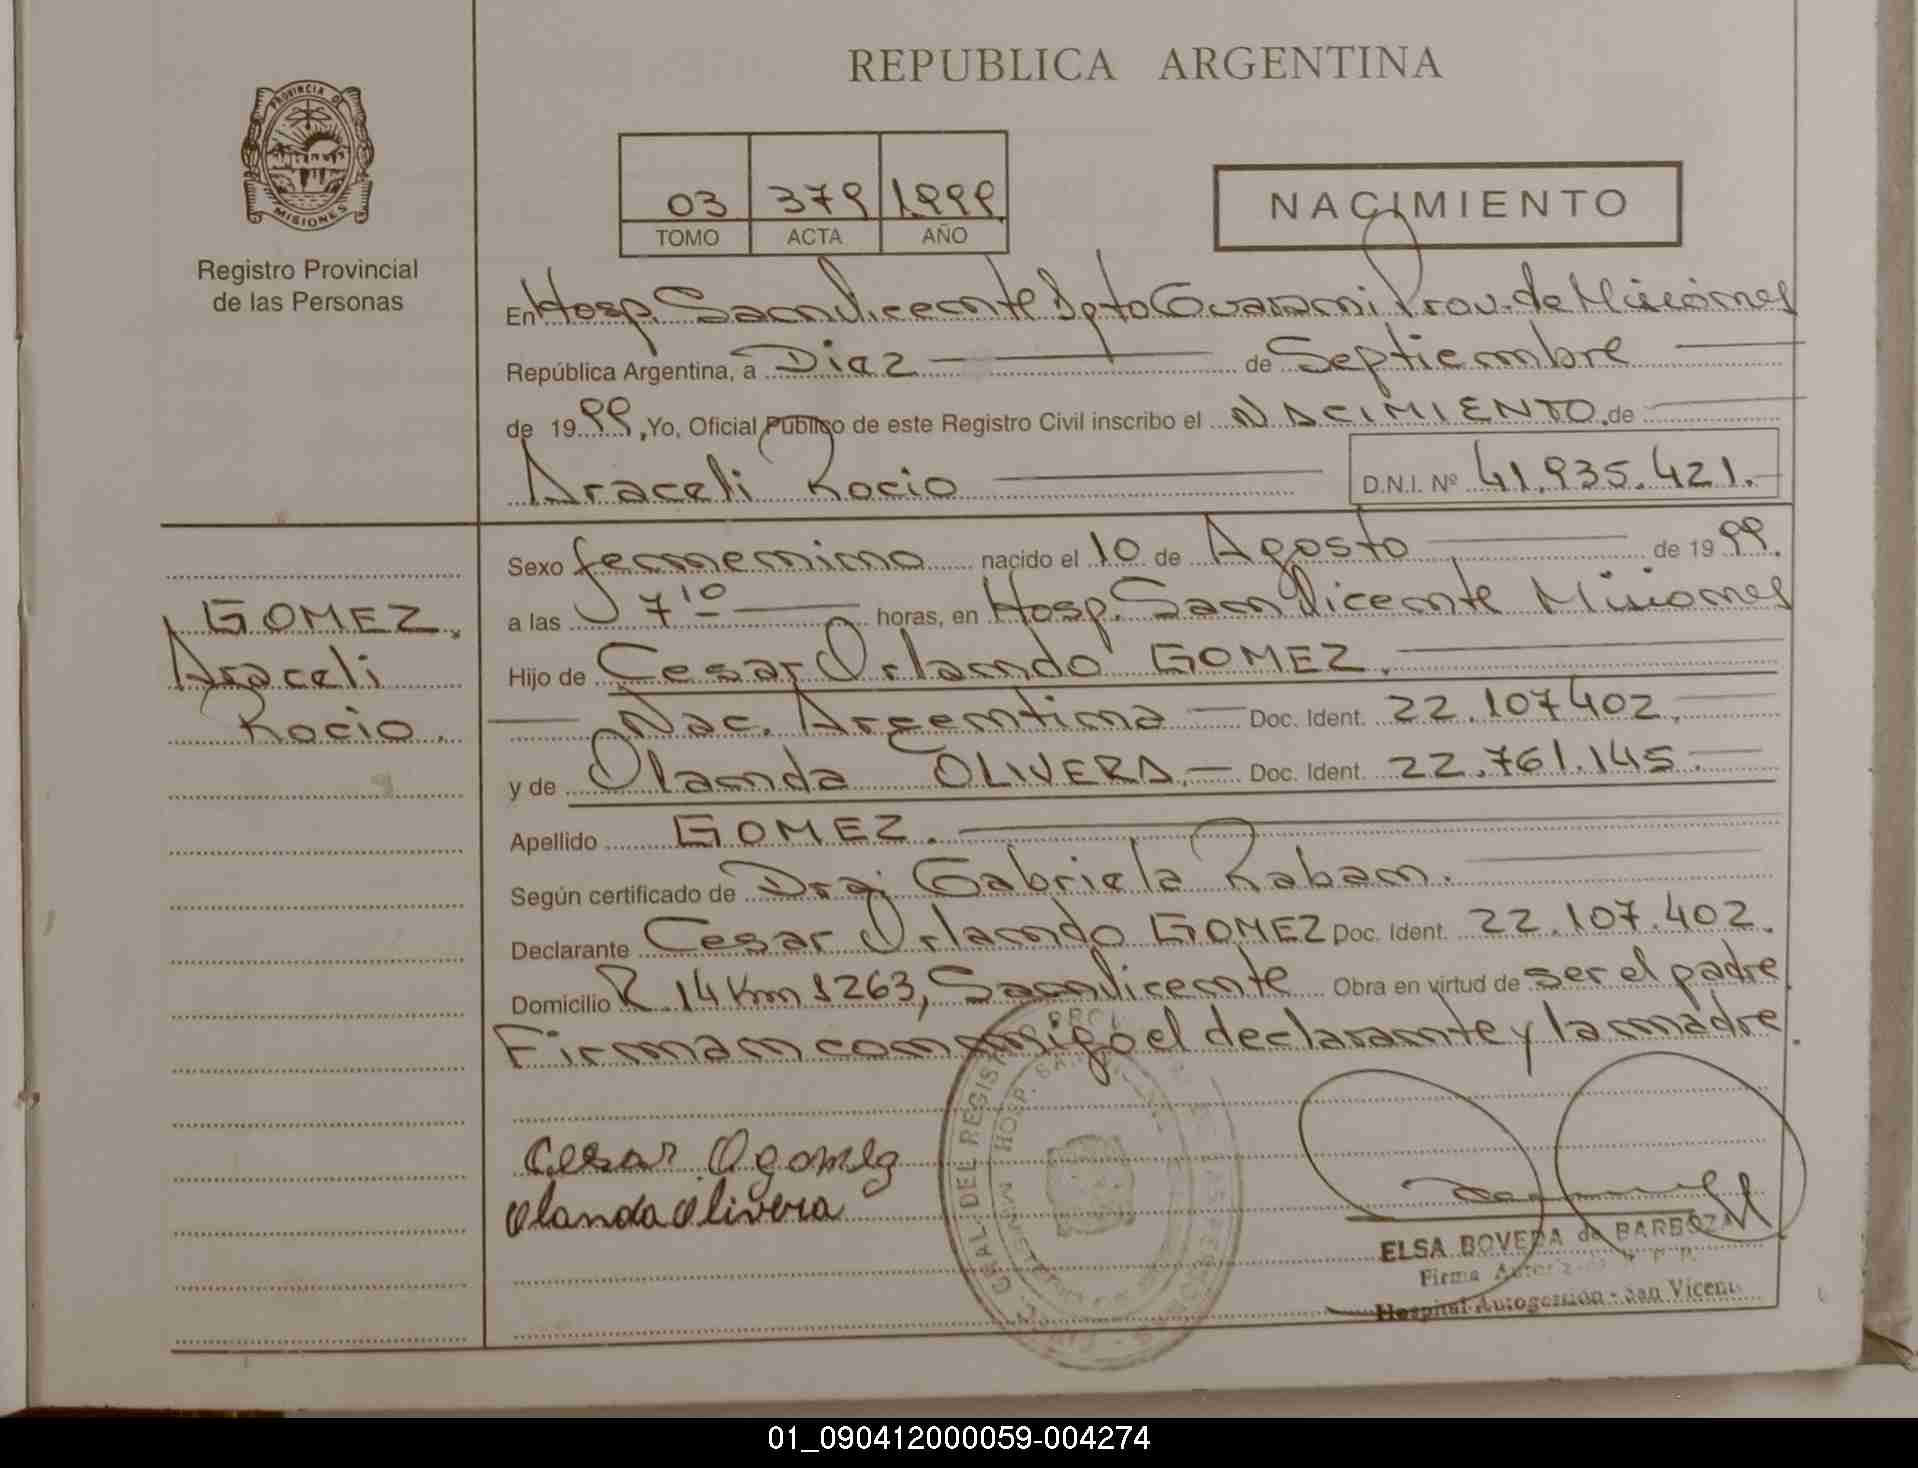 REPUBLICA ARGENTINA
PROVINCIA DE
MISIONES
Registro Provincial
de las Personas
03 379 1.999
TOMO ACTA AÑO
NACIMIENTO
En Hosp. San Vicente Dpto Guarani Prov. de Misiones
República Argentina, a Diez de Septiembre
de 1999, Yo, Oficial Público de este Registro Civil inscribo el NACIMIENTO de
Araceli Rocio D.N.I. Nº 41.935.421.
GOMEZ,
Araceli
Rocio.
Sexo femenino nacido el 10 de Agosto de 1999.
a las 7 10 horas, en Hosp. San Vicente Misiones
Hijo de Cesar Orlando GOMEZ.
Nac. Argentina Doc. Ident. 22.107402.
y de Olanda OLIVERA, Doc. Ident. 22.761.145.
Apellido GOMEZ.
Según certificado de Dra. Gabriela Raban.
Declarante Cesar Orlando GOMEZ Doc. Ident. 22.107.402.
Domicilio R. 14 Km 1263, San Vicente Obra en virtud de ser el padre.
Firman conmigo el declarante y la madre.
Cesar O gomez
Olanda Olivera
GRAL. DEL REGIST
HOSP. SA
ELSA BOVEDA de BARBOZA
Firma
Hospital Autogestión - San Vicente
01_090412000059-004274